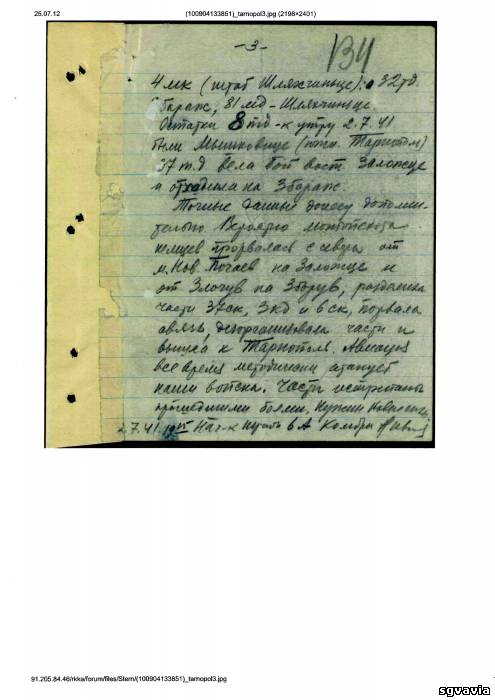 25.07.12
(100904133851)_tarnopol3.jpg (2198×2401)
-3-
134
4 мк (штаб Шляхчиньце): 32 тд.
Збараж, 81 мд - Шляхчиньце.
Остатки 8 тд - к утру 2.7.41
были Мышковице (южн. Тарнополь)
37 т.д вела бой вост. Заложце
и отходила на Збараж.
Точные данные донесу дополни-
тельно. Вероятно мотопехота
немцев прорвалась с севера от
м. Нов. Почаев на Заложце и
от Злочув на Зборув, раздавила
части 37 ск, 3 кд и 6 ск, порвала
связь, дезорганизовала части и
вышла к Тарнополь. Авиация
все время методически атакует
наши войска. Части истрепаны
прошедшими боями. Нужны
2.7.41. Нач-к 6 А Комбриг
91.205.84.46/rkka/forum/files/Stern/(100904133851)_tarnopol3.jpg
sgvavia